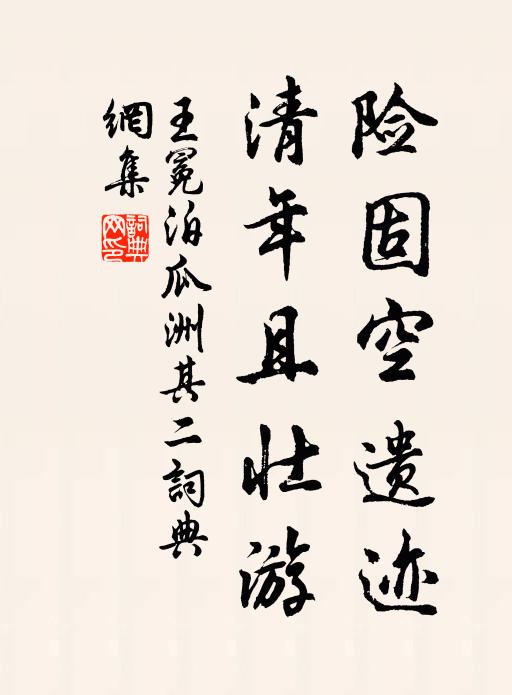 险固空遗迹
清年且壮游
王冕泊瓜洲其二詞典
網集
詞典
网印